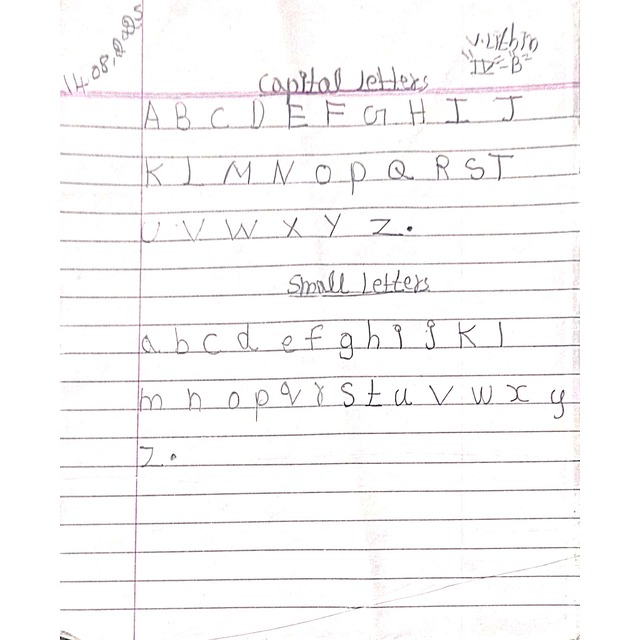 14.08.2025
V.Lithin
"IV-B"
Capital letters
A B C D E F G H I J
K L M N O P Q R S T
U V W X Y Z.
Small letters
a b c d e f g h i j k l
m n o p q r s t u v w x y
z.